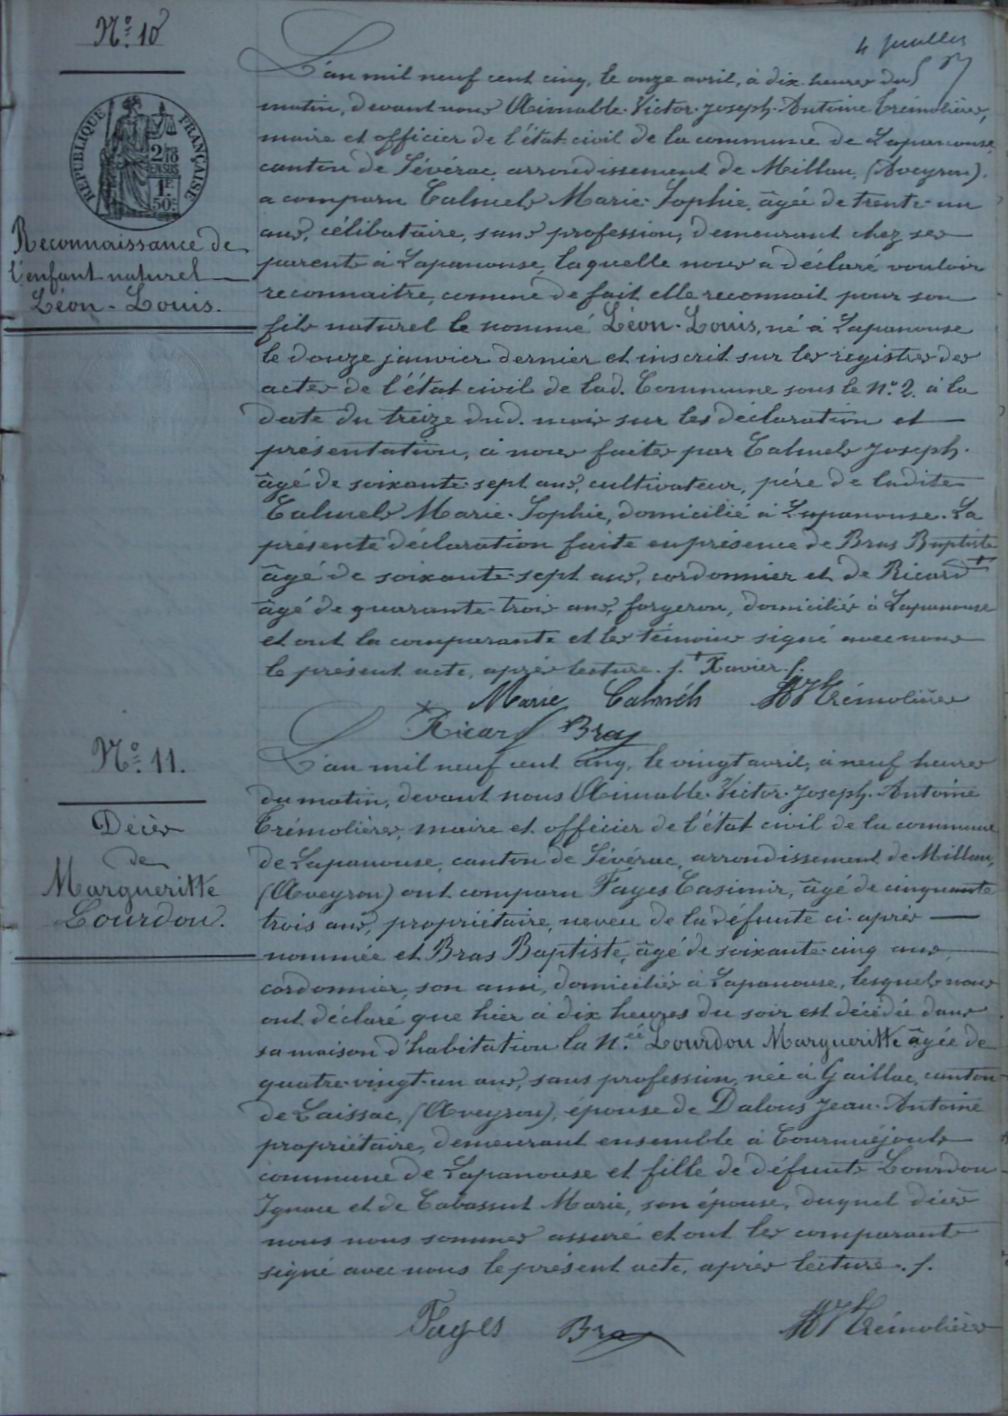 N.º 10
4 Juillet
RÉPUBLIQUE FRANÇAISE
1F
50c
Reconnaissance de
l'enfant naturel
Léon-Louis.
L'an mil neuf cent cinq, le onze avril, à dix heures du
matin, devant nous Aimable-Victor-Joseph-Antoine Trémolières,
maire et officier de l'état civil de la commune de Lapanouse,
canton de Sévérac, arrondissement de Millau (Aveyron).
a comparu Calmels Marie-Sophie, âgée de trente-un
ans, célibataire, sans profession, demeurant chez ses
parents à Lapanouse, laquelle nous a déclaré vouloir
reconnaitre, comme de fait elle reconnait pour son
fils naturel le nommé Léon-Louis, né à Lapanouse
le douze janvier dernier et inscrit sur les registres des
actes de l'état civil de lad. Commune sous le N.º 2. à la
date du treize dud. mois sur les déclaration et
présentation, à nous faites par Calmels Joseph.
âgé de soixante-sept ans, cultivateur, père de ladite
Calmels Marie-Sophie, domicilié à Lapanouse. La
présente déclaration faite en présence de Bras Baptiste
âgé de soixante-sept ans, cordonnier et de Ricard
âgé de quarante-trois ans, forgeron, domiciliés à Lapanouse
et ont la comparante et les témoins signé avec nous
le présent acte, après lecture. /. † Xavier. /.
Marie Calmels AVTrémolières
Ricard Bras
N.º 11.
Décès
de
Margueritte
Lourdou.
L'an mil neuf cent cinq, le vingt avril, à neuf heures
du matin, devant nous Aimable-Victor-Joseph-Antoine
Trémolières, maire et officier de l'état civil de la commune
de Lapanouse, canton de Sévérac, arrondissement de Millau,
(Aveyron) ont comparu Fages Casimir, âgé de cinquante
trois ans, propriétaire, neveu de la défunte ci-après
nommée et Bras Baptiste, âgé de soixante-cinq ans
cordonnier, son ami, domiciliés à Lapanouse, lesquels nous
ont déclaré que hier à dix heures du soir est décédée dans
sa maison d'habitation la N.ée Lourdou Margueritte âgée de
quatre-vingt-un ans, sans profession, née à Gaillac, canton
de Laissac, (Aveyron), épouse de Dalous Jean-Antoine
propriétaire, demeurant ensemble à Tournuéjouls
commune de Lapanouse et fille de défunts Lourdou
Ignace et de Cabassut Marie, son épouse, duquel décès
nous nous sommes assuré et ont les comparants
signé avec nous le présent acte, après lecture. /.
Fages Bras AVTrémolières